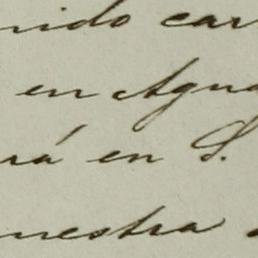 nido car
en Agua
rá en S.
nestra